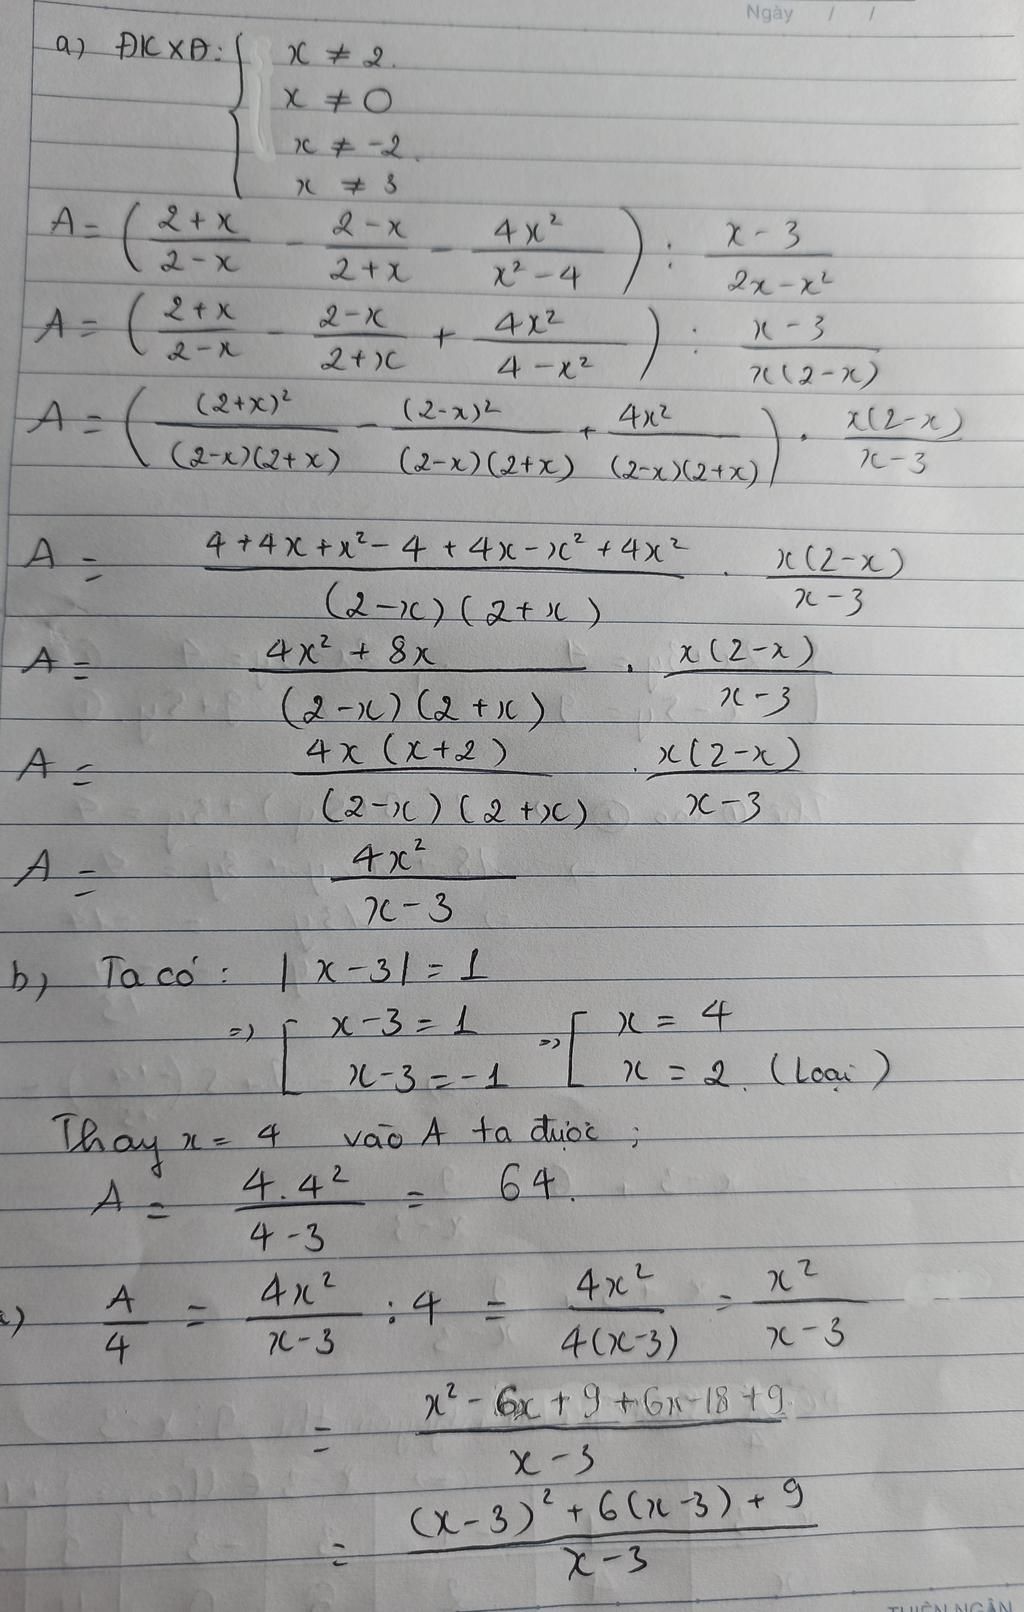 Ngày / /
a) ĐKXĐ: { x ≠ 2.
x ≠ 0
x ≠ -2.
x ≠ 3
A = ( (2+x)/(2-x) - (2-x)/(2+x) - 4x²/(x²-4) ) : (x-3)/(2x-x²)
A = ( (2+x)/(2-x) - (2-x)/(2+x) + 4x²/(4-x²) ) : (x-3)/(x(2-x))
A = ( (2+x)²/((2-x)(2+x)) - (2-x)²/((2-x)(2+x)) + 4x²/((2-x)(2+x)) ) . x(2-x)/(x-3)
A = (4+4x+x²-4+4x-x²+4x²)/((2-x)(2+x)) . x(2-x)/(x-3)
A = (4x²+8x)/((2-x)(2+x)) . x(2-x)/(x-3)
A = 4x(x+2)/((2-x)(2+x)) . x(2-x)/(x-3)
A = 4x²/(x-3)
b) Ta có: |x-3| = 1
=> [ x-3 = 1 => [ x = 4
x-3 = -1 x = 2. (Loại)
Thay x = 4 vào A ta được;
A = 4.4²/(4-3) = 64.
A/4 = 4x²/(x-3) : 4 = 4x²/(4(x-3)) = x²/(x-3)
= (x²-6x+9+6x-18+9)/(x-3)
= ((x-3)²+6(x-3)+9)/(x-3)
THIÊN NGÂN